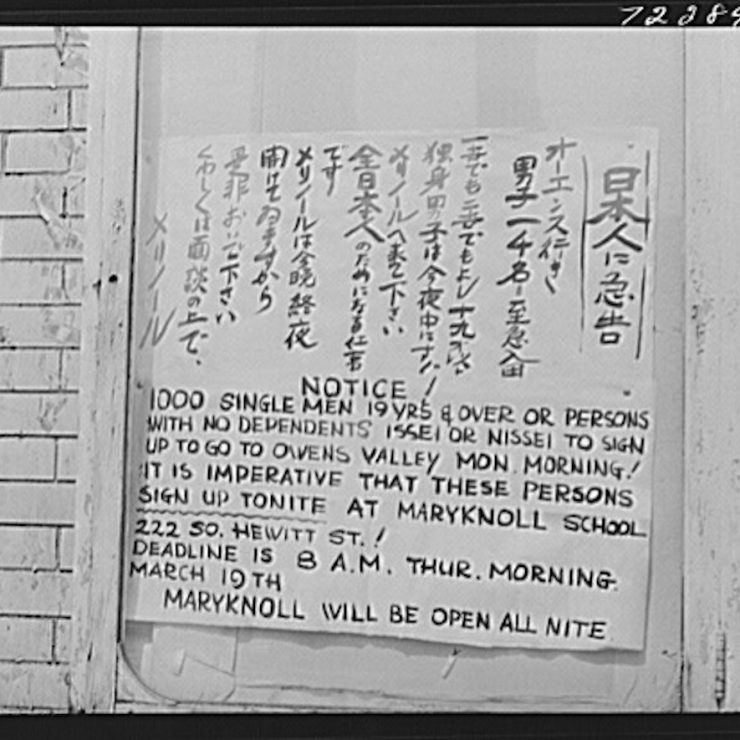 日本人に急告
オーエンス行き
男子一千名至急入用
一世でも二世でもよし十九才
独身男子は今夜中に
メリノールへ来て下さい
全日本人のためになる仕事
です
メリノールは今晩終夜
開けてゐますから
是非おいで下さい
くわしくは面談の上で、
メリノール
NOTICE!
1000 SINGLE MEN 19 YRS & OVER OR PERSONS
WITH NO DEPENDENTS ISSEI OR NISSEI TO SIGN
UP TO GO TO OWENS VALLEY MON. MORNING!
IT IS IMPERATIVE THAT THESE PERSONS
SIGN UP TONITE AT MARYKNOLL SCHOOL
222 SO. HEWITT ST.!
DEADLINE IS 8 A.M. THUR. MORNING
MARCH 19TH
MARYKNOLL WILL BE OPEN ALL NITE